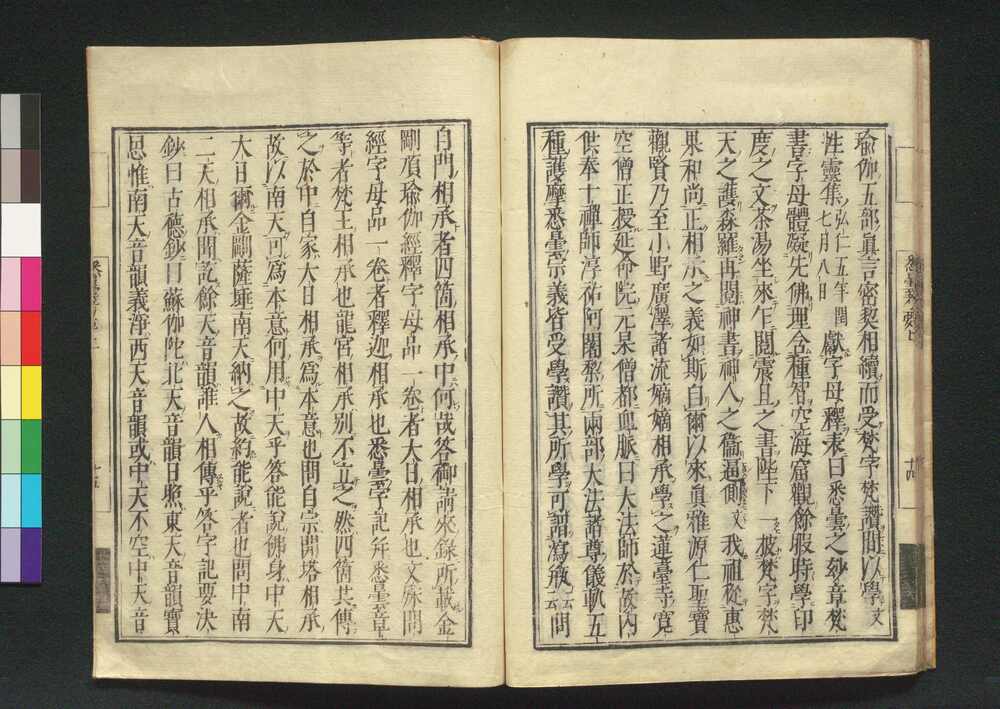 瑜伽五部眞言密契相續而受梵字梵讚間以學文
性靈集弘仁五年閏七月八日獻字母釋表曰悉曇之玅章梵
書字母體凝先佛理含種智空海窟觀餘暇時學印
度之文茶湯坐來乍閲震旦之書陛下一披梵字梵
天之護森羅再閲神書神人之衞逼側文我祖從惠
果和尚正相承之義如斯自爾以來眞雅源仁聖寶
觀賢乃至小野廣澤諸流嫡嫡相承學之蓮臺寺寬
空僧正授延命院元杲僧都血脈曰大法師於故內
供奉十禪師淳祐阿闍黎所兩部大法諸尊儀軌五
種護摩悉曇宗義皆受學讚其所學可謂瀉瓶云云問
自門相承者四箇相承中何哉答御請來錄所載金
剛頂瑜伽經釋字母品一卷者大日相承也文殊問
經字母品一卷者釋迦相承也悉曇字記并悉曇章
等者梵王相承也龍宮相承別不立之然四箇共傳
之於中自家大日相承爲本意也問自宗開塔相承
故以南天可爲本意何用中天乎答能說佛身中天
大日爾金剛薩埵南天納之故約能說者也問中南
二天相承聞訖餘天音韻誰人相傳乎答字記要決
鈔曰古德鈔曰蘇伽陀北天音韻日照東天音韻寶
思惟南天音韻義淨西天音韻或中天不空中天音